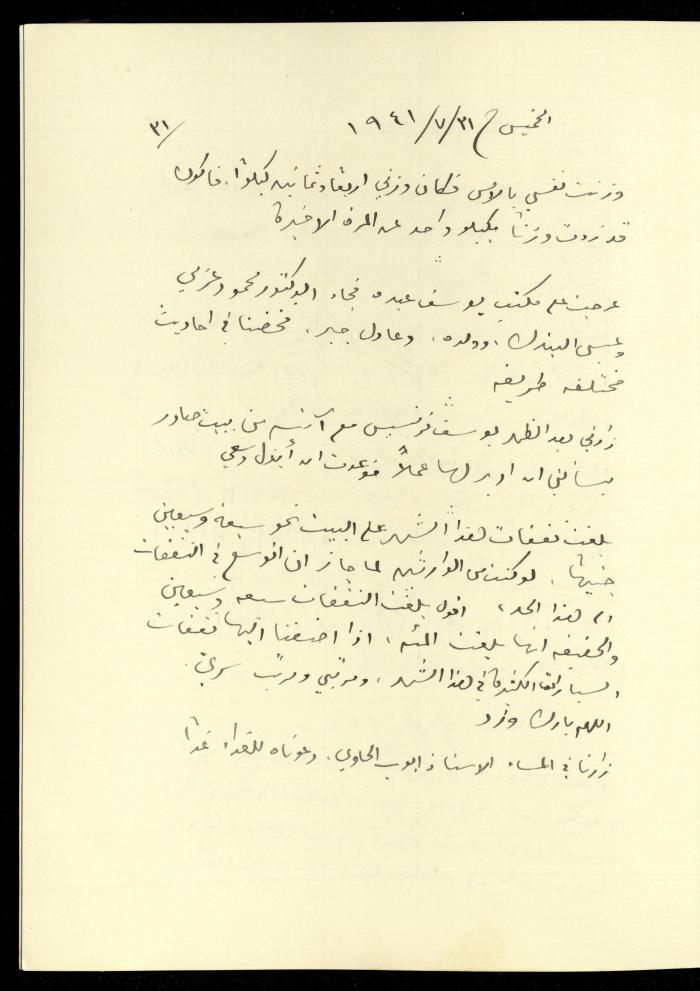 الخميس في ٣١/٧/١٩٤١
٣١/
وزنت نفسي بالامس فكان وزني اربعة وثمانين كيلوًا، فاكون
قد زدت وزنًا بكيلو واحد عن المرة الاخيرة
عرجت على مكتب يوسف عبده فجاء الدكتور محمود عزمي
وعيسى البندك، وولده، وعادل جبر، فخضنا في احاديث
مختلفة طريفة
زارني بعد الظهر يوسف فرنسيس مع آنسة من بيت صادر
يسألني ان ادبر لها عملاً فوعدت ان أبذل وسعي
بلغت نفقات هذا الشهر على البيت نحو سبعة وسبعين
جنيهًا، لو كنت من الوارثين لما جاز ان اتوسع في النفقات
الى هذا الحد، اقول بلغت النفقات سبعة وسبعين
والحقيقة انها بلغت المئة، اذا اضفنا اليها نفقات
السيارة الكثيرة في هذا الشهر، ومرتبي ومرتب سري.
اللهم بارك وزد
زارنا في المساء الاستاذ ايوب الحاوي. دعوناه للغداء غدًا